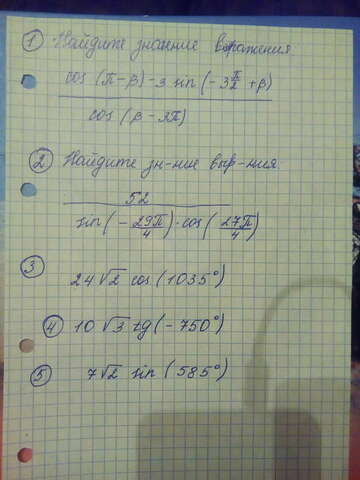 ① Найдите значение выражения
cos (π-β)-3 sin(-3π/2 +β)
cos (β - 2π)
② Найдите зн-ние выр-ния.
52
sin(-29π/4)·cos(27π/4)
③
24√2 cos (1035°)
④ 10√3 tg(-750°)
⑤ 7√2 sin (585°)